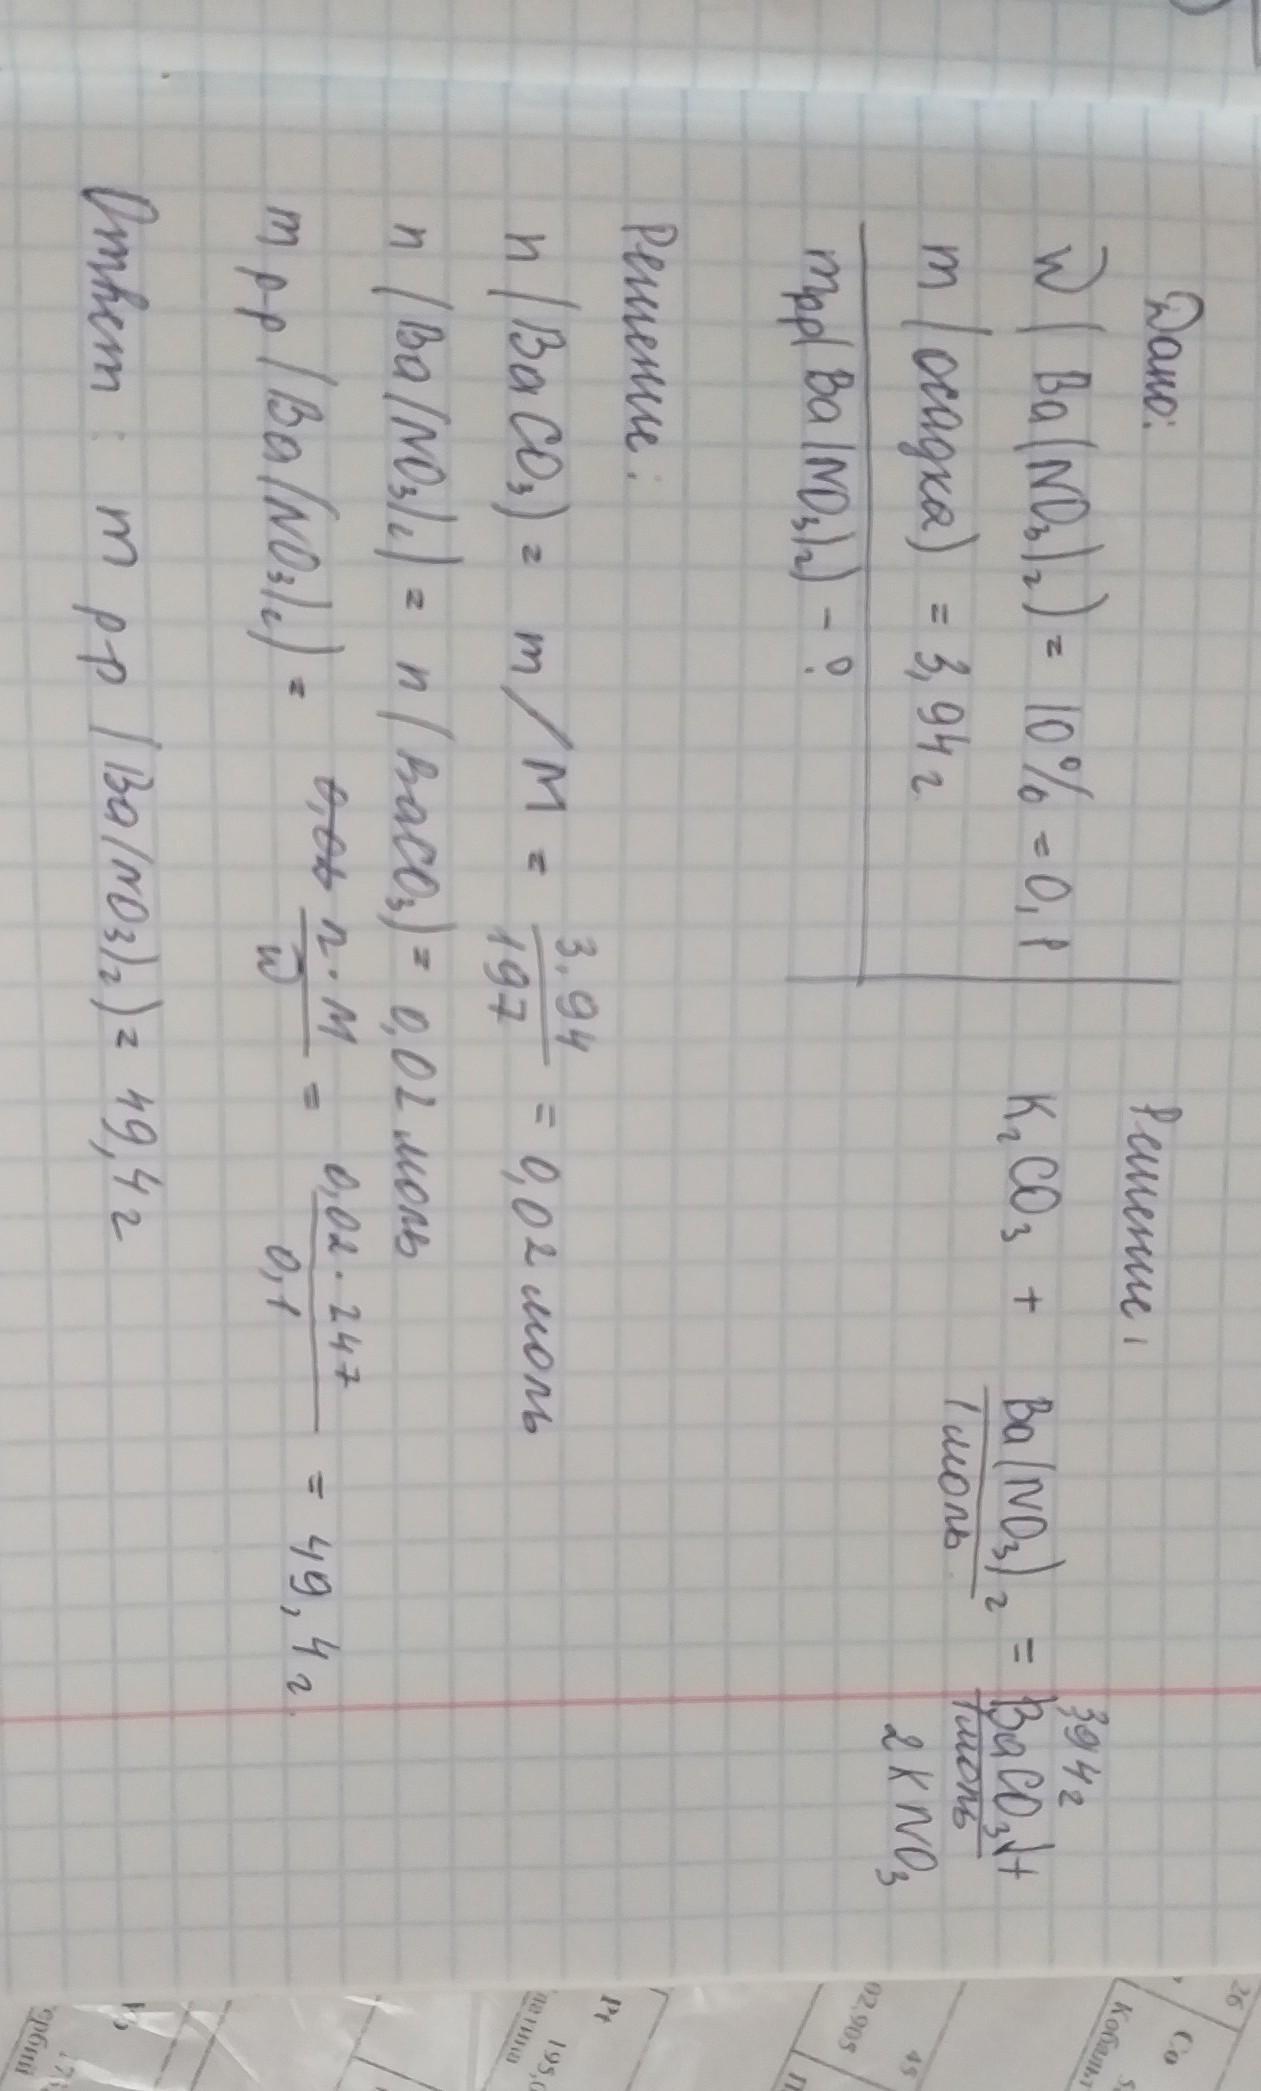 Дано:
W(Ba(NO3)2) = 10% = 0,1
m(осадка) = 3,94г
mрр(Ba(NO3)2) - ?
Решение,
3,94г
K2CO3 + Ba(NO3)2 = BaCO3↓+
1 моль 1моль
2KNO3
Решение:
n(BaCO3) = m/M = 3,94/197 = 0,02 моль
n(Ba(NO3)2) = n(BaCO3) = 0,02 моль
m рр(Ba(NO3)2) = n·M/W = 0,02·247/0,1 = 49,4г.
Ответ: m рр(Ba(NO3)2) = 49,4г
26
Co
Кобальт
45
02,905
Pt
195,0
латина
ербий